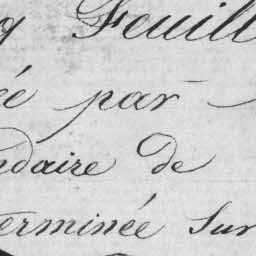 Feuill
ée par
ndaire de
erminée Sur